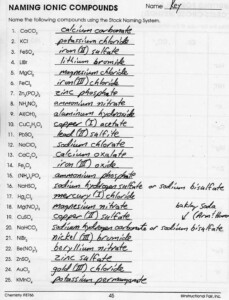 NAMING IONIC COMPOUNDS Name Key
Name the following compounds using the Stock Naming System.
1. CaCO₃ calcium carbonate
2. KCl potassium chloride
3. FeSO₄ iron (II) sulfate
4. LiBr lithium bromide
5. MgCl₂ magnesium chloride
6. FeCl₃ iron (III) chloride
7. Zn₃(PO₄)₂ zinc phosphate
8. NH₄NO₃ ammonium nitrate
9. Al(OH)₃ aluminum hydroxide
10. CuC₂H₃O₂ copper (I) acetate
11. PbSO₃ lead (II) sulfite
12. NaClO₃ sodium chlorate
13. CaC₂O₄ calcium oxalate
14. Fe₂O₃ iron (III) oxide
15. (NH₄)₃PO₄ ammonium phosphate
16. NaHSO₄ sodium hydrogen sulfate or sodium bisulfate
17. Hg₂Cl₂ mercury (I) chloride
18. Mg(NO₂)₂ magnesium nitrite baking soda
19. CuSO₄ copper (II) sulfate
20. NaHCO₃ sodium hydrogen carbonate or sodium bicarbonate
21. NiBr₃ nickel (III) bromide
22. Be(NO₃)₂ beryllium nitrate
23. ZnSO₄ zinc sulfate
24. AuCl₃ gold (III) chloride
25. KMnO₄ potassium permanganate
Chemistry IF8766 45 Instructional Fair, Inc.